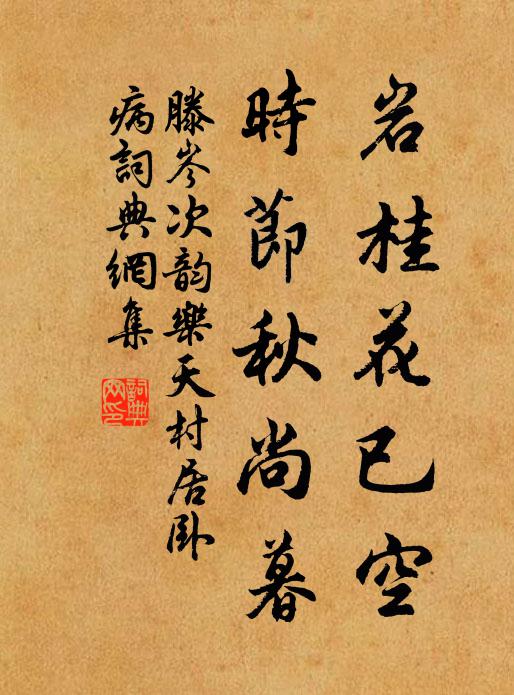 岩桂花已空
時節秋尚暮
滕岑次韵樂天村居卧
病詞典網集
詞典網印